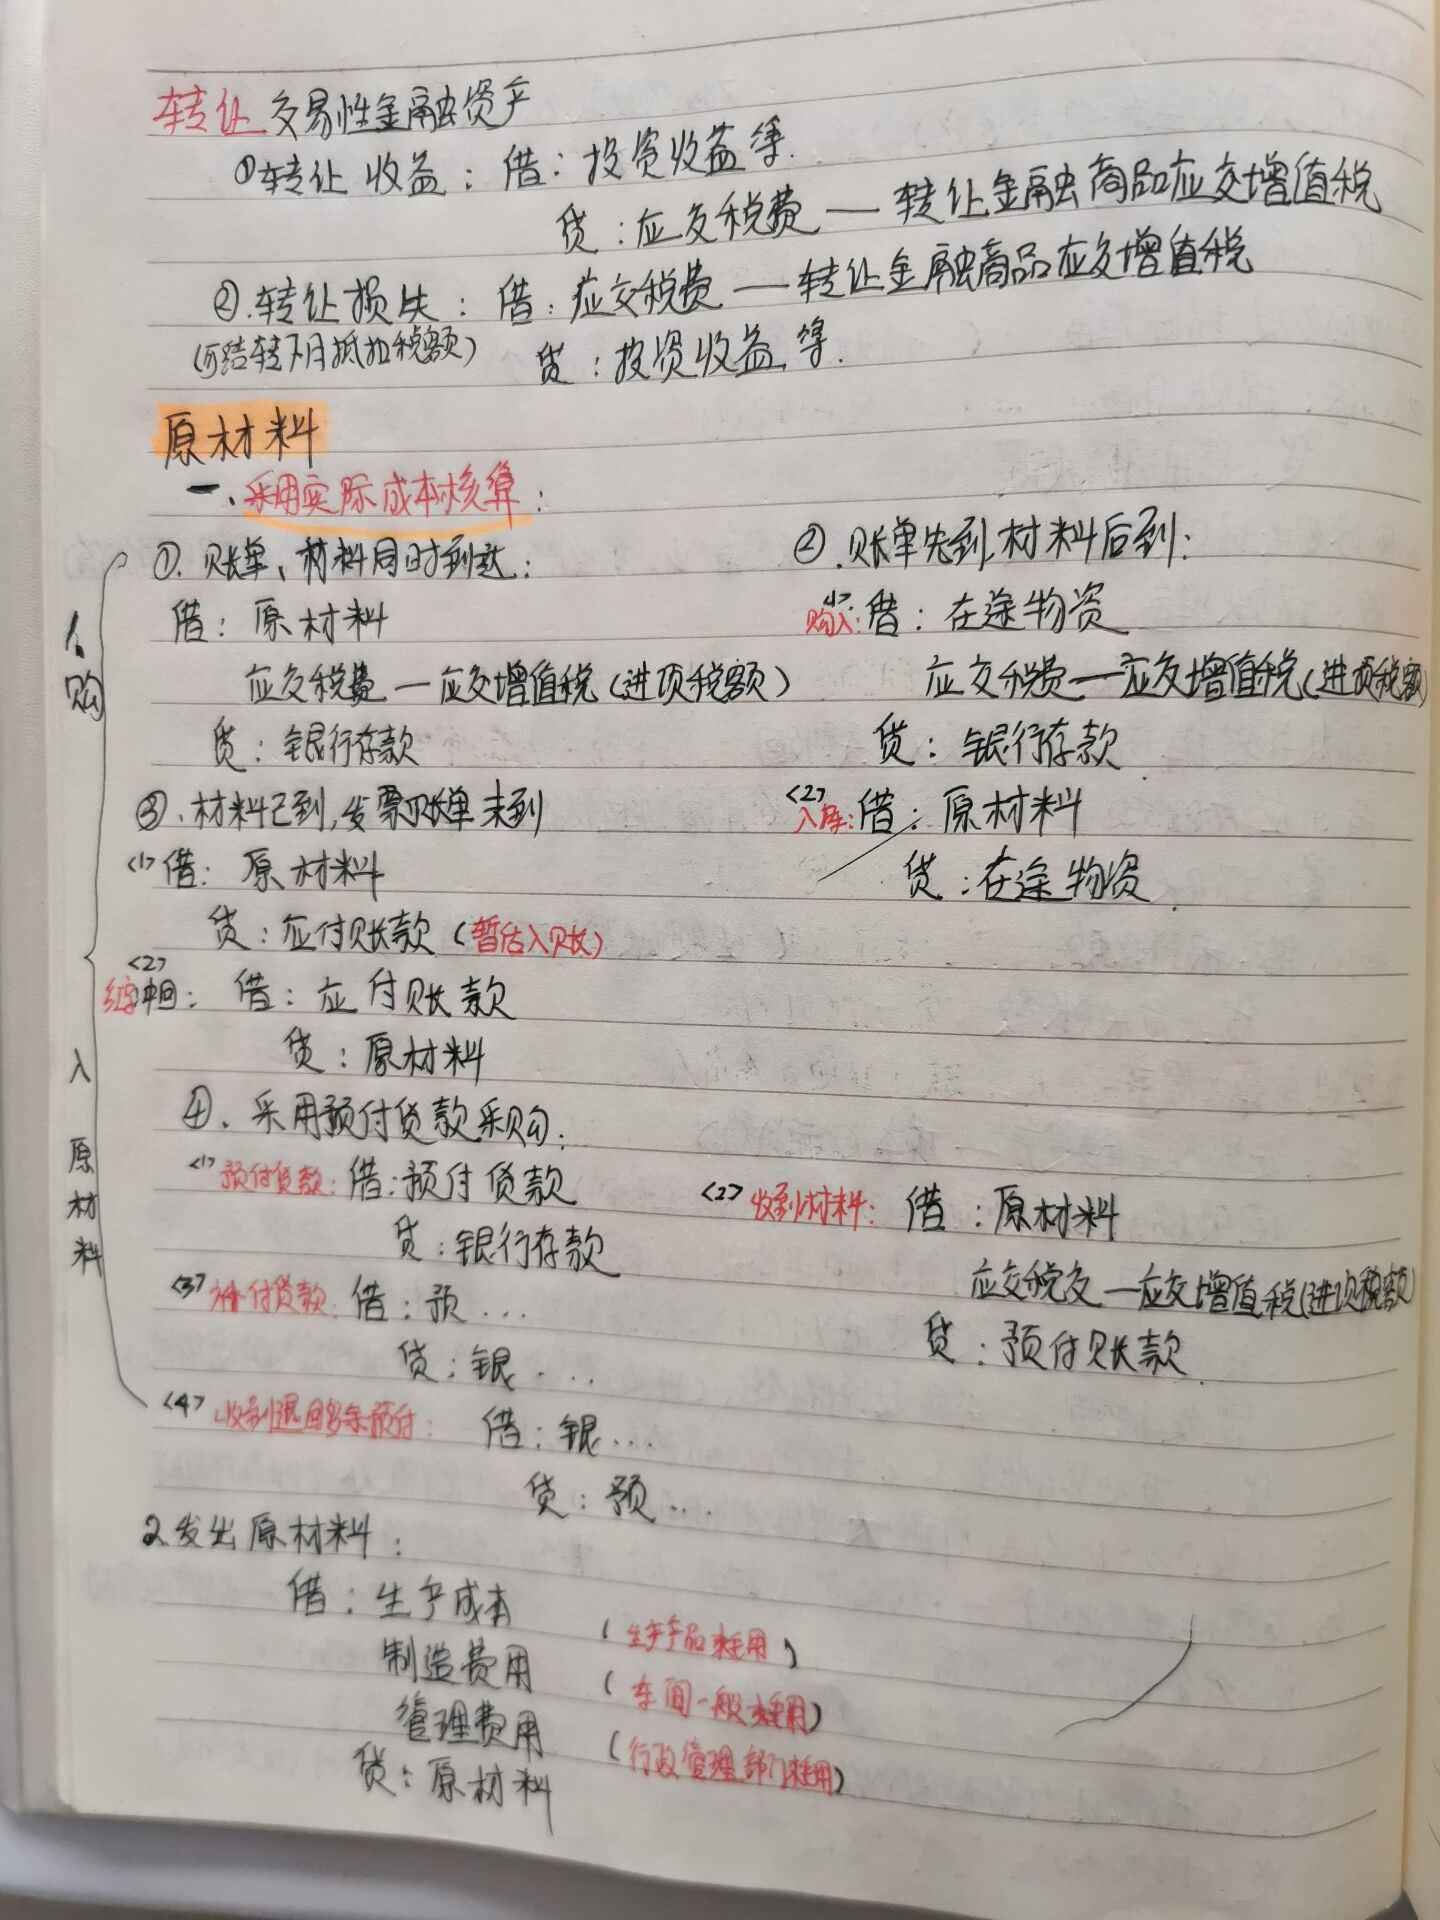 转让交易性金融资产
①转让收益：借：投资收益等.
贷：应交税费—转让金融商品应交增值税
②.转让损失：借：应交税费—转让金融商品应交增值税
(可结转下月抵扣税额)
贷：投资收益等.
原材料
一、采用实际成本核算：
1、购入原材料
①.账单、材料同时到达：
借：原材料
应交税费—应交增值税(进项税额)
贷：银行存款
②.账单先到,材料后到：
<1>购入：借：在途物资
应交税费—应交增值税(进项税额)
贷：银行存款
<2>入库：借：原材料
贷：在途物资
③.材料已到,发票账单未到
<1>借：原材料
贷：应付账款(暂估入账)
<2>红字冲回：借：应付账款
贷：原材料
④.采用预付货款采购：
<1>预付货款：借：预付货款
贷：银行存款
<2>收到材料：借：原材料
应交税交—应交增值税(进项税额)
贷：预付账款
<3>补付货款：借：预...
贷：银...
<4>收到退回多余预付：借：银...
贷：预...
2.发出原材料：
借：生产成本(生产产品耗用)
制造费用(车间一般耗用)
管理费用(行政管理部门耗用)
贷：原材料